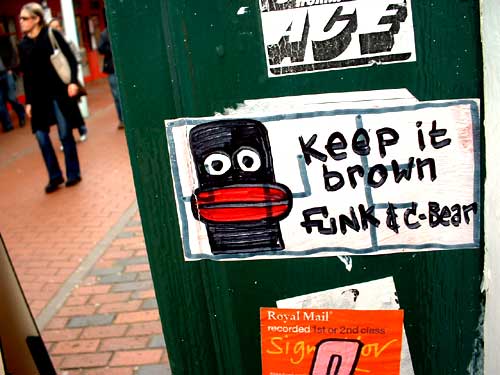 ACE
Keep it
brown
FUNK & C-Bear
Royal Mail
recorded 1st or 2nd class
Sign for